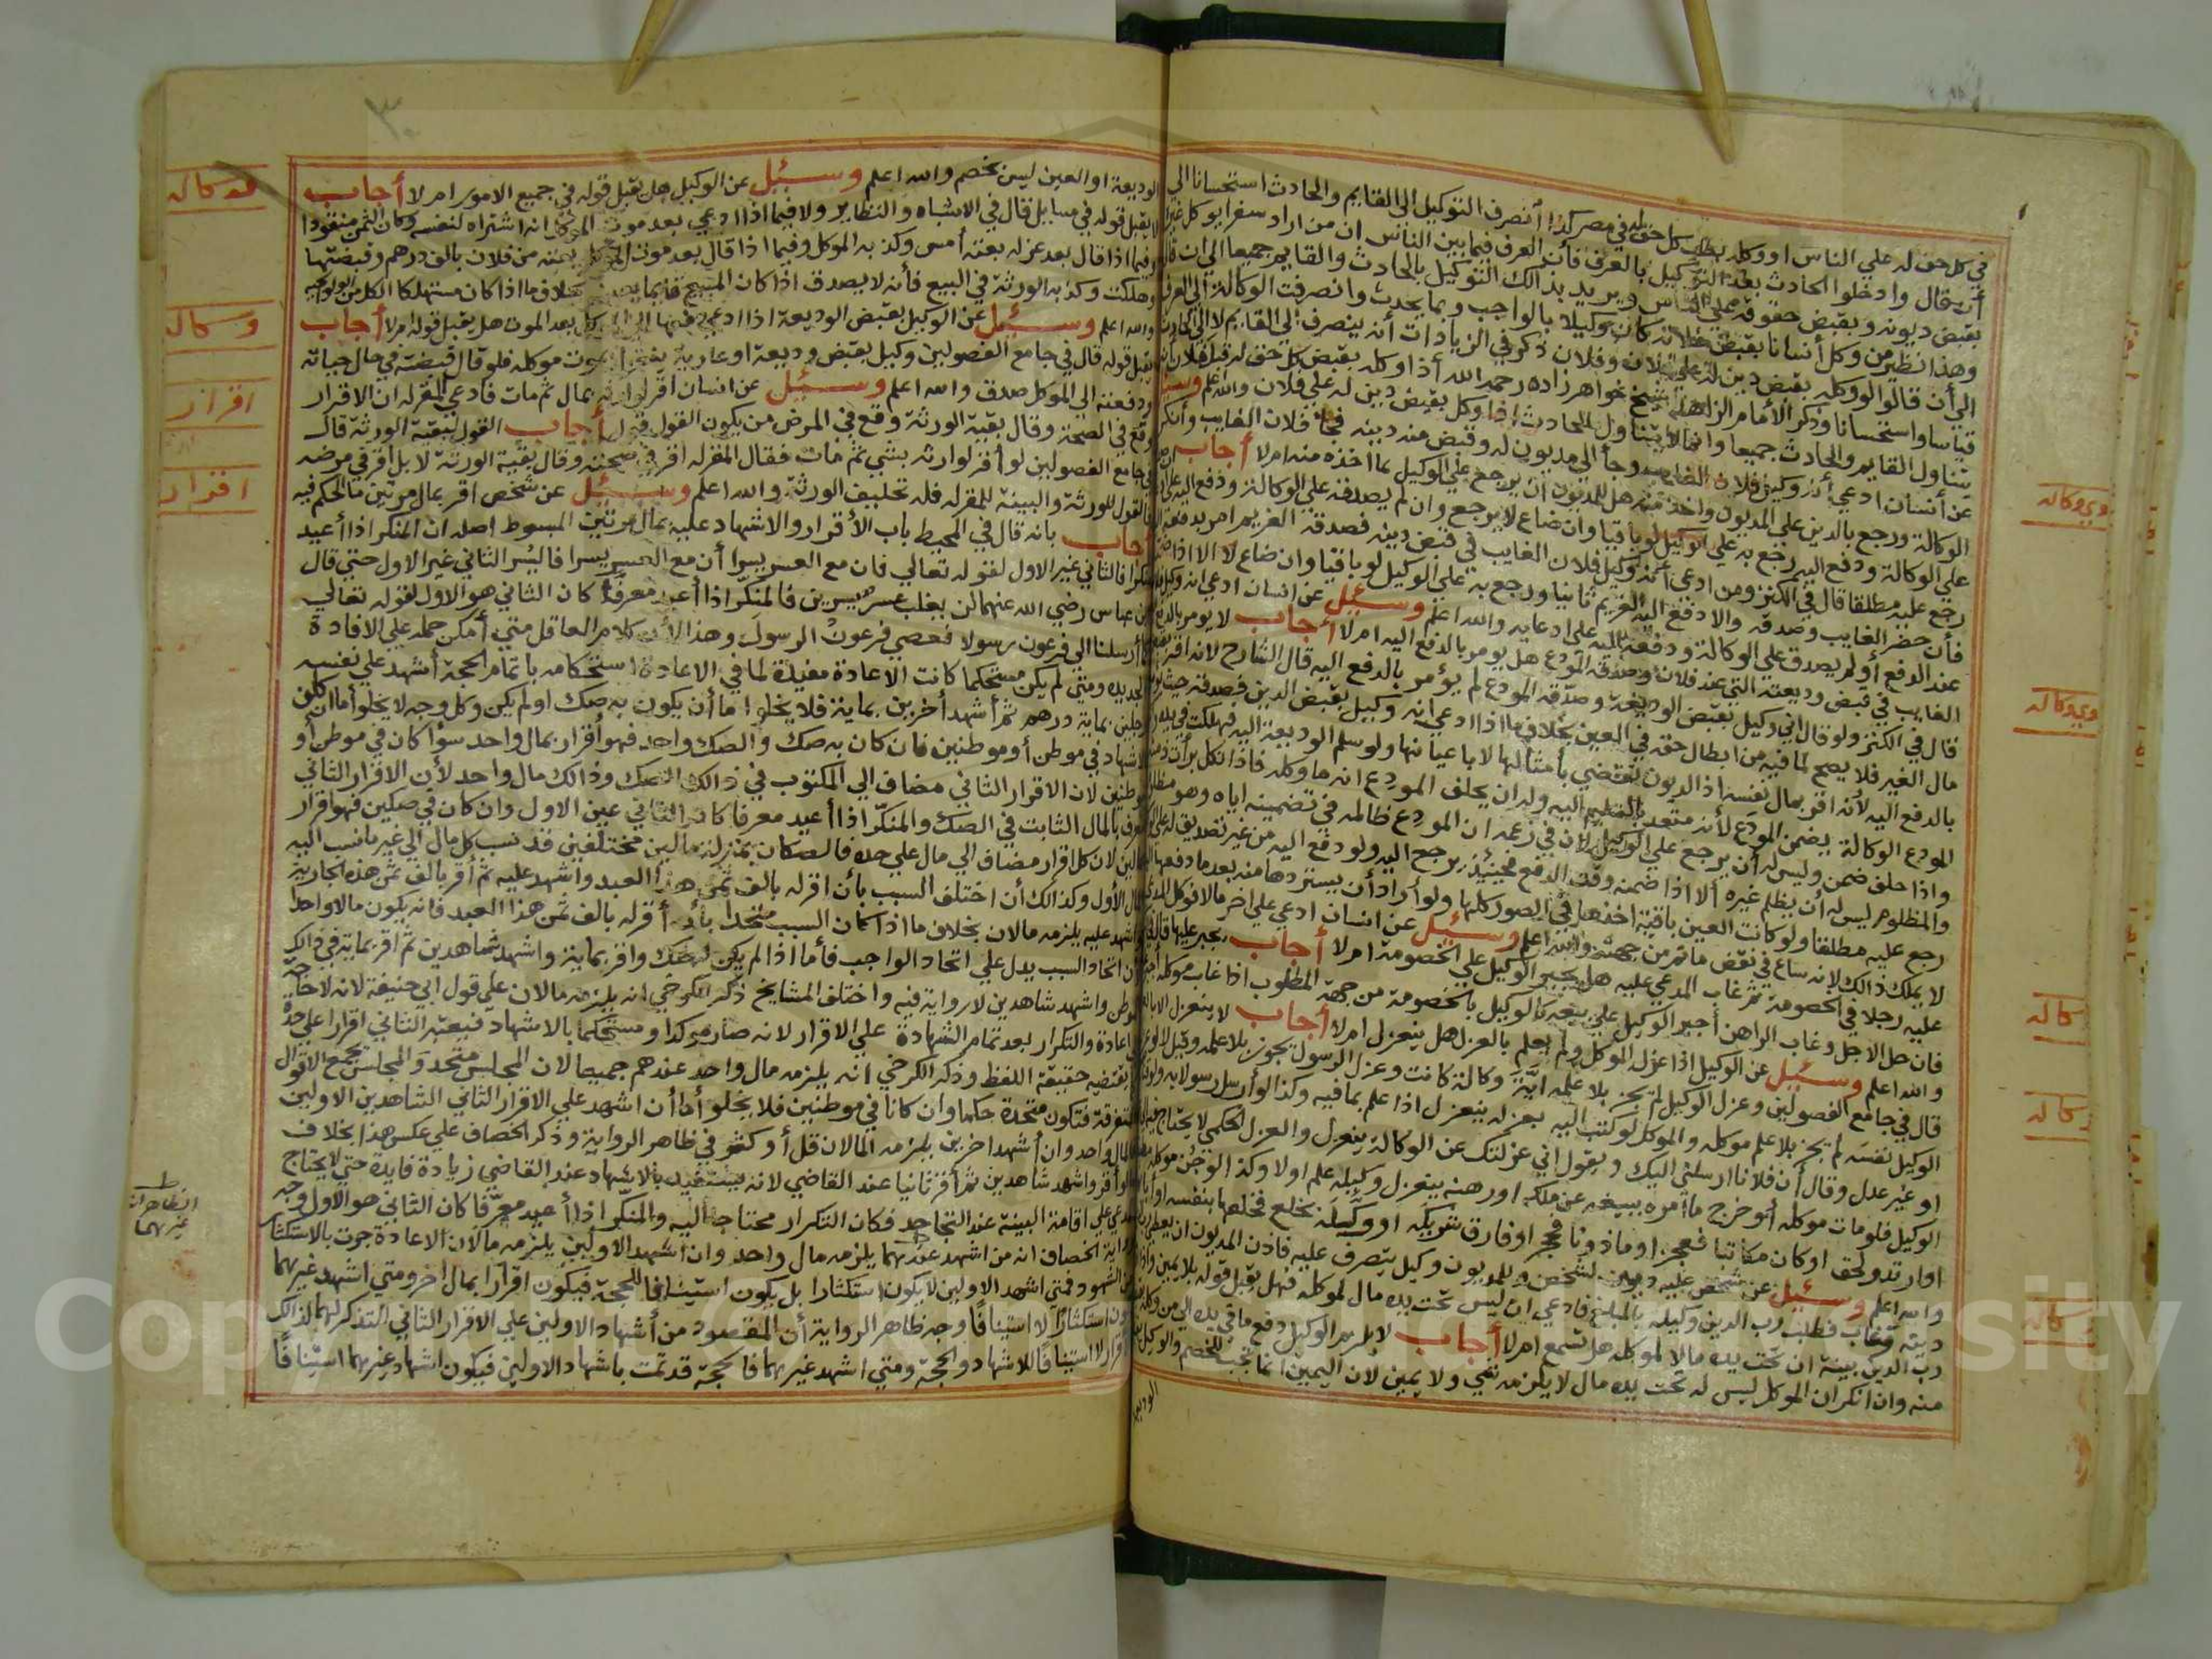 في كل حق له علي الناس او وكله بطلب كل حق له في مصر كذا انصرف التوكيل الي القايم والحادث استحسانا الي
أن قال وادخلوا الحادث بعد التوكيل بالعرف فأن العرف فيما بين الناس ان من اراد سفرا يوكل غيره
بقبض ديونه وبقبض حقوقه علي الناس ويريد بذالك التوكيل بالحادث والقايم جميعا الي ان قال
وهذا نظير من وكل أنسانا بقبض غلاته كان وكيلا بالواجب وبما يحدث وانصرفت الوكالة الي العرف
الي أن قالوا لو وكله بقبض دين له علي فلان وفلان ذكر في الزيادات أنه ينصرف الي القايم لا الي الحادث
قياسا واستحسانا وذكر الأمام الزاهد شيخ خواهر زاده رحمه الله اذا وكله بقبض كل حق له قبل فلان أنه
يتناول القايم والحادث جميعا وانما لا يتناول الحادث اذا وكل بقبض دين له علي فلان والله اعلم وسئل
عن أنسان ادعي أنه وكيل فلان الغايب وجأ الي مديون له وقبض منه دينه فجأ فلان الغايب وأنكر
الوكالة ورجع بالدين علي المديون واخذ منه هل للمديون ان يرجع علي الوكيل بما اخذه منه امر لا أجاب
علي الوكالة ودفع اليه رجع به علي الوكيل لو باقيا وان ضاع لا يرجع وان لم يصدقه علي الوكالة ودفع اليه علي
رجع عليه مطلقا قال في الكنز ومن ادعي أنه وكيل فلان الغايب في قبض دينه فصدقه الغريم امر بدفعه اليه
فأن حضر الغايب وصدقه والا دفع اليه الغريم ثانيا ورجع به علي الوكيل لو باقيا وان ضاع لا الا اذا ضمنه
عند الدفع أو لم يصدق علي الوكالة ودفعه اليه علي ادعايه والله اعلم وسئل عن انسان ادعي انه وكيل
الغايب في قبض وديعته التي عند فلان وصدقه المودع هل يومر بالدفع اليه امر لا أجاب لا يومر بالدفع
قال في الكنز ولو قال اني وكيل بقبض الوديعة وصدقه المودع لم يؤمر بالدفع اليه قال الشارح لانه اقر
مال الغير فلا يصح لما فيه من ابطال حقه في العين بخلاف ما اذا ادعي انه وكيل بقبض الدين فصدقه حيث يومر
بالدفع اليه لأنه اقر بمال نفسه اذ الديون تقتضي بأمثالها لا باعيانها ولو سلم الوديعة اليه فهلكت في يده
المودع الوكالة يضمن المودع لأنه متعد بالتسليم اليه وله ان يحلف المودع انه ما وكله فاذا نكل برأ
واذا حلف ضمن وليس له أن يرجع علي الوكيل لان في زعمه ان المودع ظالمه في تضمينه اياه وهو مظلوم
والمظلوم ليس له أن يظلم غيره ألا اذا ضمنه وقت الدفع فحينئذ يرجع اليه ولو دفع اليه من غير تصديق له علي
رجع عليه مطلقا ولو كانت العين باقية اخذها في الصور كلها ولو أراد أن يستردها منه بعد ما دفعها اليه
لا يملك ذالك لانه ساع في نقض ما تم من جهته والله اعلم وسئل عن انسان ادعي علي اخر مالا فوكل المدعي
عليه رجلا في الخصومة ثم غاب المدعي عليه هل يجبر الوكيل علي الخصومة امر لا أجاب يجبر عليها قال
فان حل الاجل وغاب الراهن أجبر الوكيل علي بيعه كالوكيل بالخصومة من جهة المطلوب اذا غاب موكله
والله اعلم وسئل عن الوكيل اذا عزله الموكل ولم يعلم بالعزل هل ينعزل امر لا أجاب لا ينعزل الا بالعلم
قال في جامع الفصولين وعزل الوكيل لم يجز بلا علمه ايّة وكالة كانت وعزل الرسول يجوز بلا علمه
الوكيل نفسه لم يجز بلا علم موكله والموكل لو كتب اليه بعزله ينعزل اذا علم بما فيه وكذا لو أرسل رسولا
او غير عدل وقال أن فلانا ارسلني اليك ويقول اني عزلتك عن الوكالة ينعزل والعزل الحكمي لا يحتاج
الوكيل فلو مات موكله أو خرج ما أمره ببيعه عن ملكه او رهنه ينعزل وكيله علم اولا وكذا لو جن موكله
او ارتد ولحق او كان مكاتبا فعجز او ماذونا فحجر او فارق شريكه او وكيله بخلع فخلعها بنفسه او
والله اعلم وسئل عن شخص عليه ديون لشخص وللمديون وكيل يتصرف عليه فاذن المديون ان يعطي
دينه وغاب فطلب رب الدين وكيله بالمبلغ فادعي ان ليس تحت يده مال لموكله فهل يقبل قوله بلا يمين واذا
رب الدين بينة ان تحت يده مالا لموكله هل تسمع امر لا أجاب لا يلزم الوكيل دفع ما في يده الي من وكله
منه وان انكر ان الموكل ليس له تحت يده مال لا يلزمه شي ولا يمين لان اليمين انما تجب للخصم والوكيل
الوديعة
وكاله
وكاله
كاله
كاله
كاله
الوديعة او العين ليس بخصم والله اعلم وسئل عن الوكيل هل يقبل قوله في جميع الامور امر لا أجاب
لا يقبل قوله في مسايل قال في الاشباه والنظاير ولا فيما اذا ادعي بعد موت الموكل انه اشتراه لنفسه وكان الثمن منقودا
وفيما اذا قال بعد عزله بعته أمس وكذبه الموكل وفيما اذا قال بعد موت الموكل بعته من فلان بالف درهم وقبضتها
وهلكت وكذبه الورثة في البيع فأنه لا يصدق اذا كان المبيع قايما بعينه بخلاف ما اذا كان مستهلكا الكل من الولوالجيه
والله اعلم وسئل عن الوكيل بقبض الوديعة اذا ادعي قبضها الوكيل بعد الموت هل يقبل قوله امر لا أجاب
يقبل قوله قال في جامع الفصولين وكيل بقبض وديعة او عارية ينعزل بموت موكله فلو قال قبضته في حال حياته
ودفعته الي الموكل صدق والله اعلم وسئل عن انسان اقر لوارثه بمال ثم مات فادعي المقر له ان الاقرار
وقع في الصحة وقال بقية الورثة وقع في المرض من يكون القول قوله أجاب القول لبقية الورثة قال
في جامع الفصولين لو أقر لوارثه بشي ثم مات فقال المقر له اقر في صحته وقال بقية الورثة لا بل أقر في مرضه
فالقول للورثة والبينة للمقر له فله تحليف الورثة والله اعلم وسئل عن شخص اقر بمال مرتين ما الحكم فيه
أجاب بانه قال في المحيط باب الأقرار والاشهاد عليه بمال مرتين المبسوط اصله ان المنكر اذا أعيد
منكرا فالثاني غير الاول لقوله تعالي فان مع العسر يسرا أن مع العسر يسرا فاليسر الثاني غير الاول حتي قال
ابن عباس رضي الله عنهما لن يغلب عسر يسرين فالمنكر اذا أعيد معرفا كان الثاني هو الاول لقوله تعالي
كما أرسلنا الي فرعون رسولا فعصي فرعون الرسول وهذا لأن كلام العاقل متي أمكن حمله علي الافادة
الجديده ومتي لم يكن مستحكما كانت الاعادة مفيدة لما في الاعادة استحكامه باتمام الحجة أشهد علي نفسه
رجلين بماية درهم ثم أشهد أخرين بماية فلا يخلوا ما أن يكون به صك او لم يكن وكل وجه لا يخلو أما ان كان
الاشهاد في موطن أو موطنين فان كان به صك والصك واحد فهو أقرار بمال واحد سؤا كان في موطن أو
موطنين لان الاقرار الثاني مضاف الي المكتوب في ذالك الصك وذالك مال واحد لأن الاقرار الثاني
معرف بالمال الثابت في الصك والمنكر اذا أعيد معرفا كان الثاني عين الاول وان كان في صكين فهو اقرار
بمالين لان كل اقرار مضاف الي مال علي حده فالصكان بمنزله مالين مختلفين قد نسب كل مال الي غير ما نسب اليه
المال الأول وكذالك أن اختلف السبب بأن اقر له بالف ثمن هذا العبد واشهد عليه ثم أقر بالف ثمن هذه الجارية
واشهد عليه يلزمه مالان بخلاف ما اذا كان السبب متحدا بأن أقر له بالف ثمن هذا العبد فانه يكون مالا واحدا
لأن اتحاد السبب يدل علي اتحاد الواجب فأما اذا لم يكن به صك واقر بماية واشهد شاهدين ثم اقر بماية في ذالك
الموطن واشهد شاهدين لا رواية فيه واختلف المشايخ ذكر الكرخي انه يلزمه مالان علي قول ابي حنيفة لانه لا حاجة
الي اعادة والتكرار بعد تمام الشهادة علي الاقرار لانه صار موكدا ومستحكما بالاشهاد فيعتبر الثاني اقرارا علي حدة
بقضية حقيقة اللفظ وذكر الكرخي انه يلزمه مال واحد عندهم جميعا لان المجلس متحد والمجلس يجمع الاقوال
المتفرقة فتكون متحدة حكما وان كانا في موطنين فلا يخلو أما أن اشهد علي الاقرار الثاني الشاهدين الاولين
فالمال واحد وان أشهد اخرين يلزمه المالان قل أو كثر في ظاهر الرواية وذكر الخصاف علي عكس هذا بخلاف
لو أقر واشهد شاهدين ثم أقر ثانيا عند القاضي لانه يستفيد بالاشهاد عند القاضي زيادة فايدة حتي لا يحتاج
المدعي علي اقامة البينة عند التجاحد فكان التكرار محتاجا اليه والمنكر اذا أعيد معرّفا كان الثاني هو الاول وجه
رواية الخصاف انه من اشهد عندهما يلزمه مال واحد وان اشهد الاولين يلزمه مالان لان الاعادة جرت بالاستكثار
من الشهود فمتي اشهد الاولين لا يكون استكثارا بل يكون استينافا للحجة فيكون اقرارا بمال اخر ومتي اشهد غيرهما
يكون استكثارا لا استينافا وجه ظاهر الرواية أن المقصود من أشهاد الاولين علي الاقرار الثاني التذكر لهما لذالك
الاقرار لا استينافا للاشهاد والحجة ومتي اشهد غيرهما فالحجة قد تمت باشهاد الاولين فيكون اشهاد غيرهما استينافا
وكاله
وكاله
اقرار
اقرار
الظاهر ان
غيرهما
Copyright © King Saud University